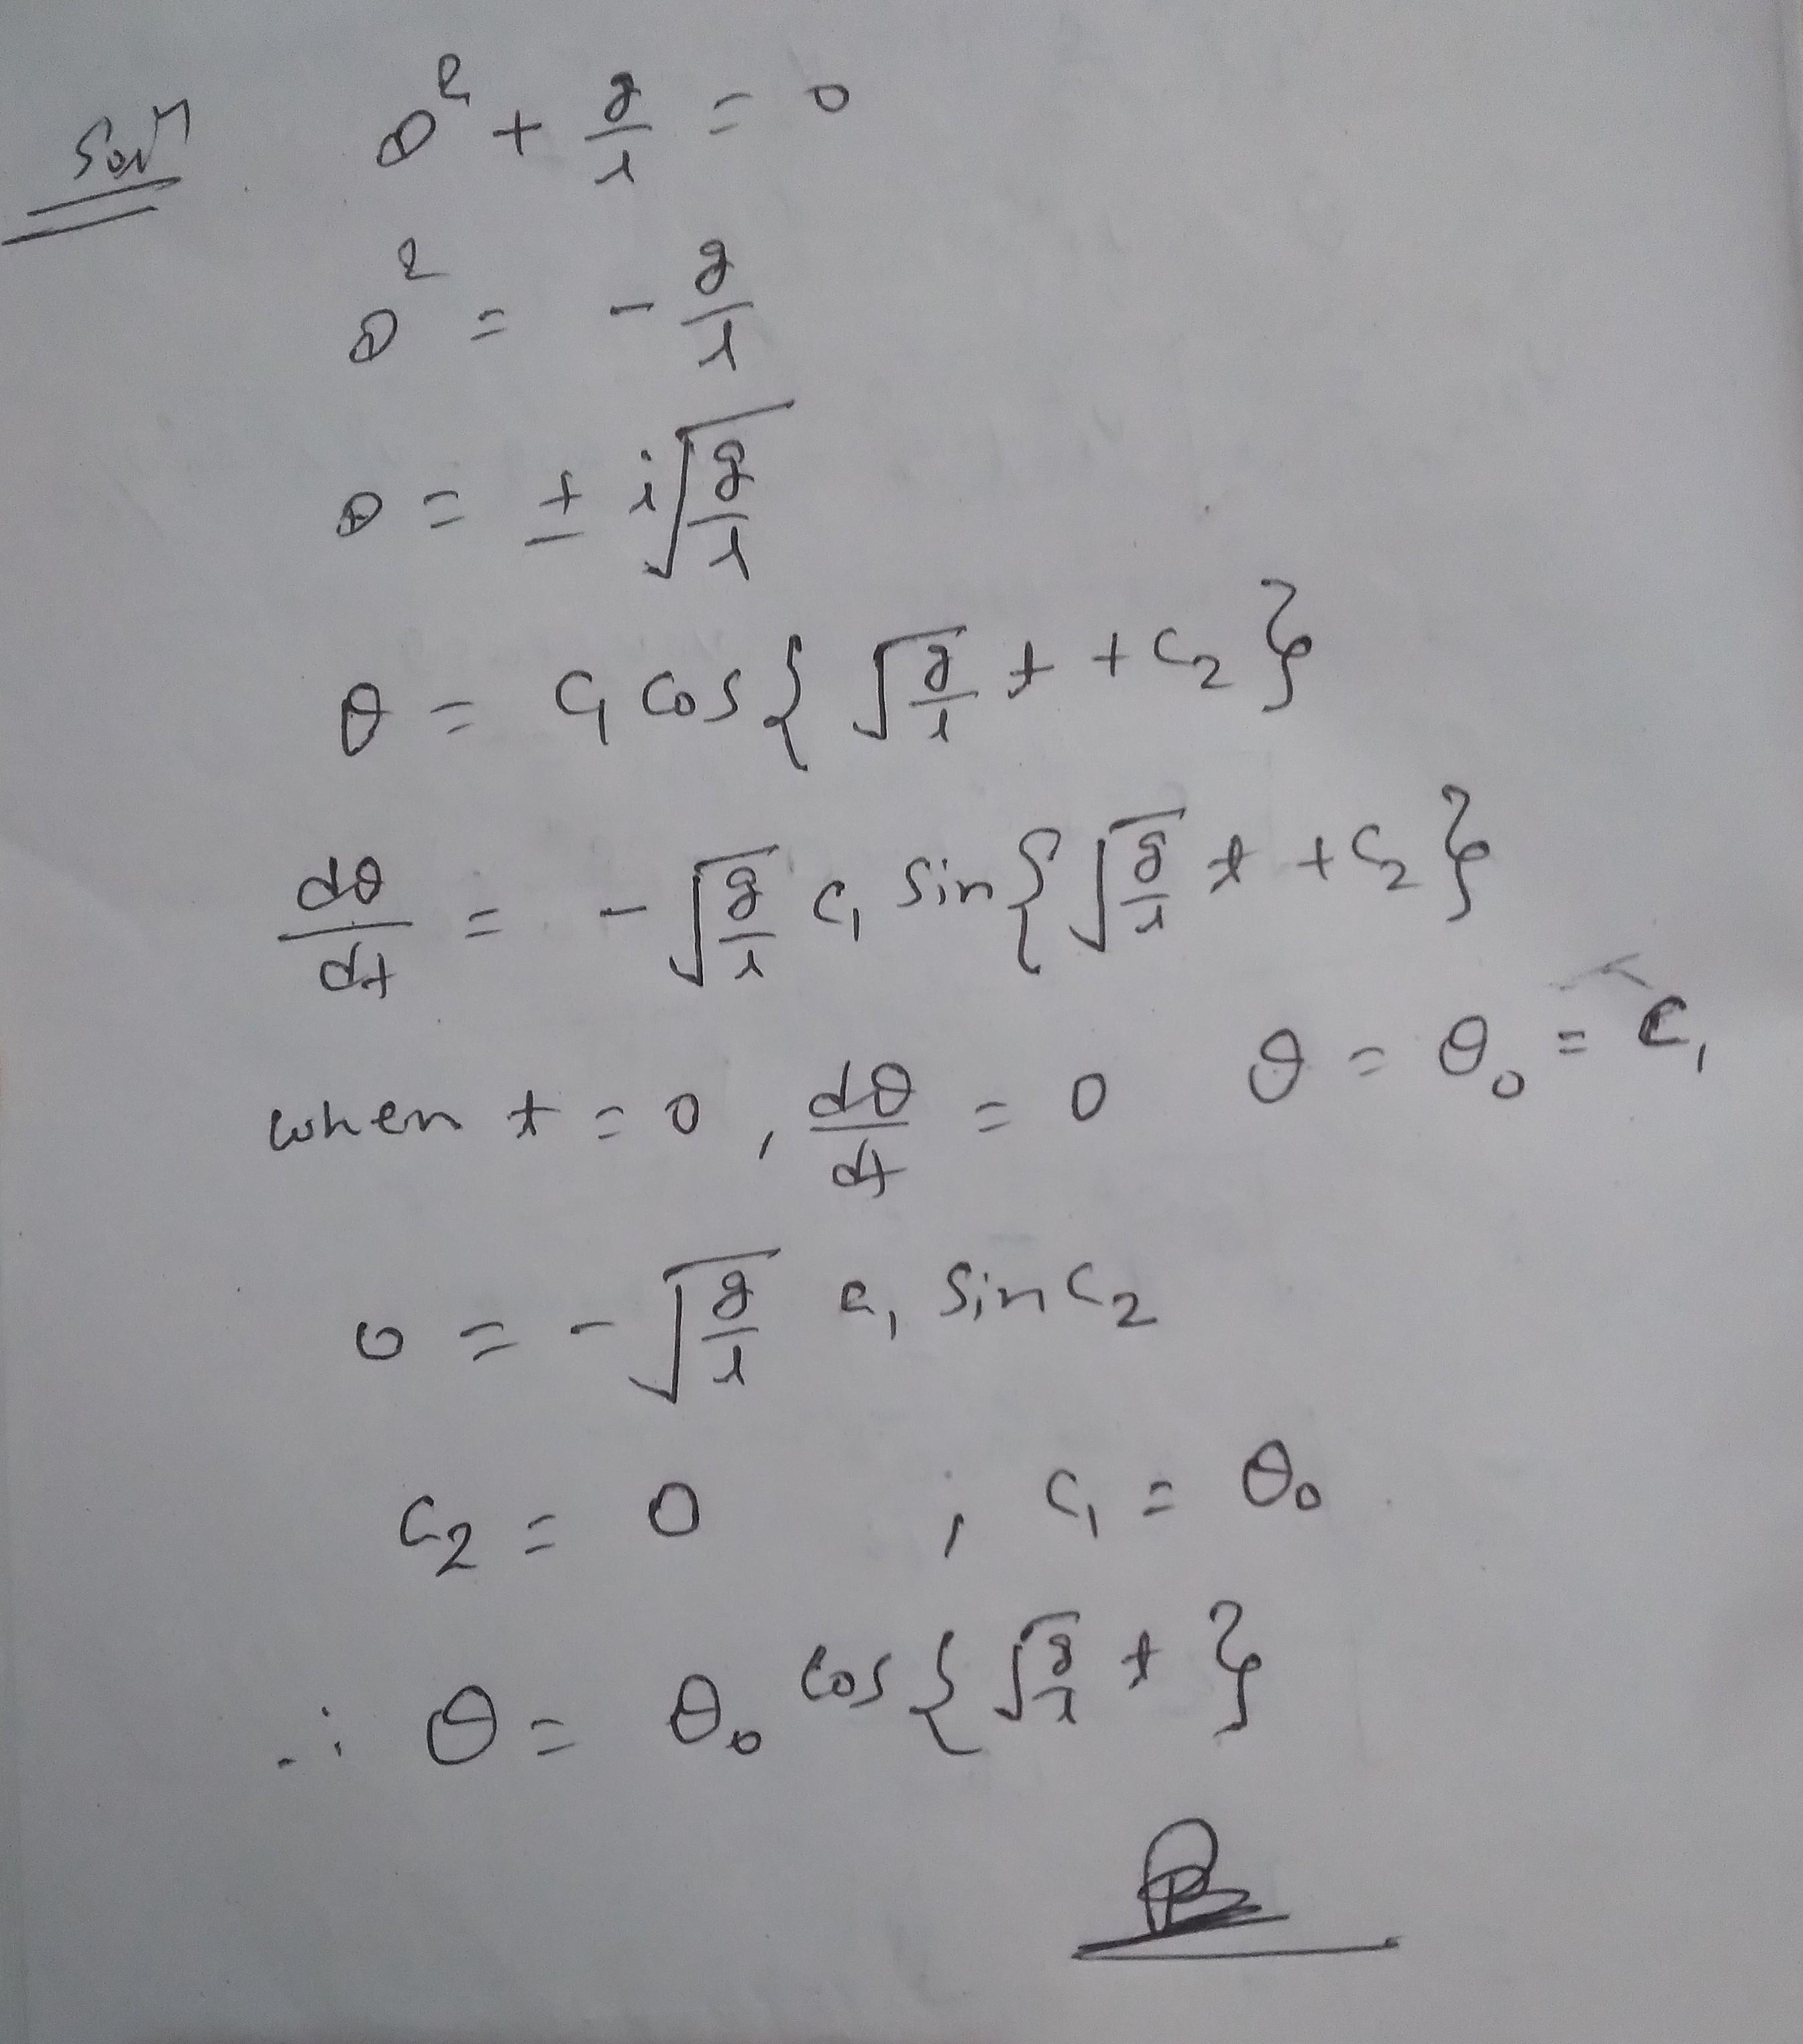 Solⁿ D² + g/l = 0
D² = - g/l
D = ± i√(g/l)
θ = C₁ cos{ √(g/l) t + C₂ }
dθ/dt = - √(g/l) C₁ sin{ √(g/l) t + C₂ }
when t = 0 , dθ/dt = 0 θ = θ₀ = C₁
0 = - √(g/l) C₁ sin C₂
C₂ = 0 , C₁ = θ₀
∴ θ = θ₀ cos{ √(g/l) t }